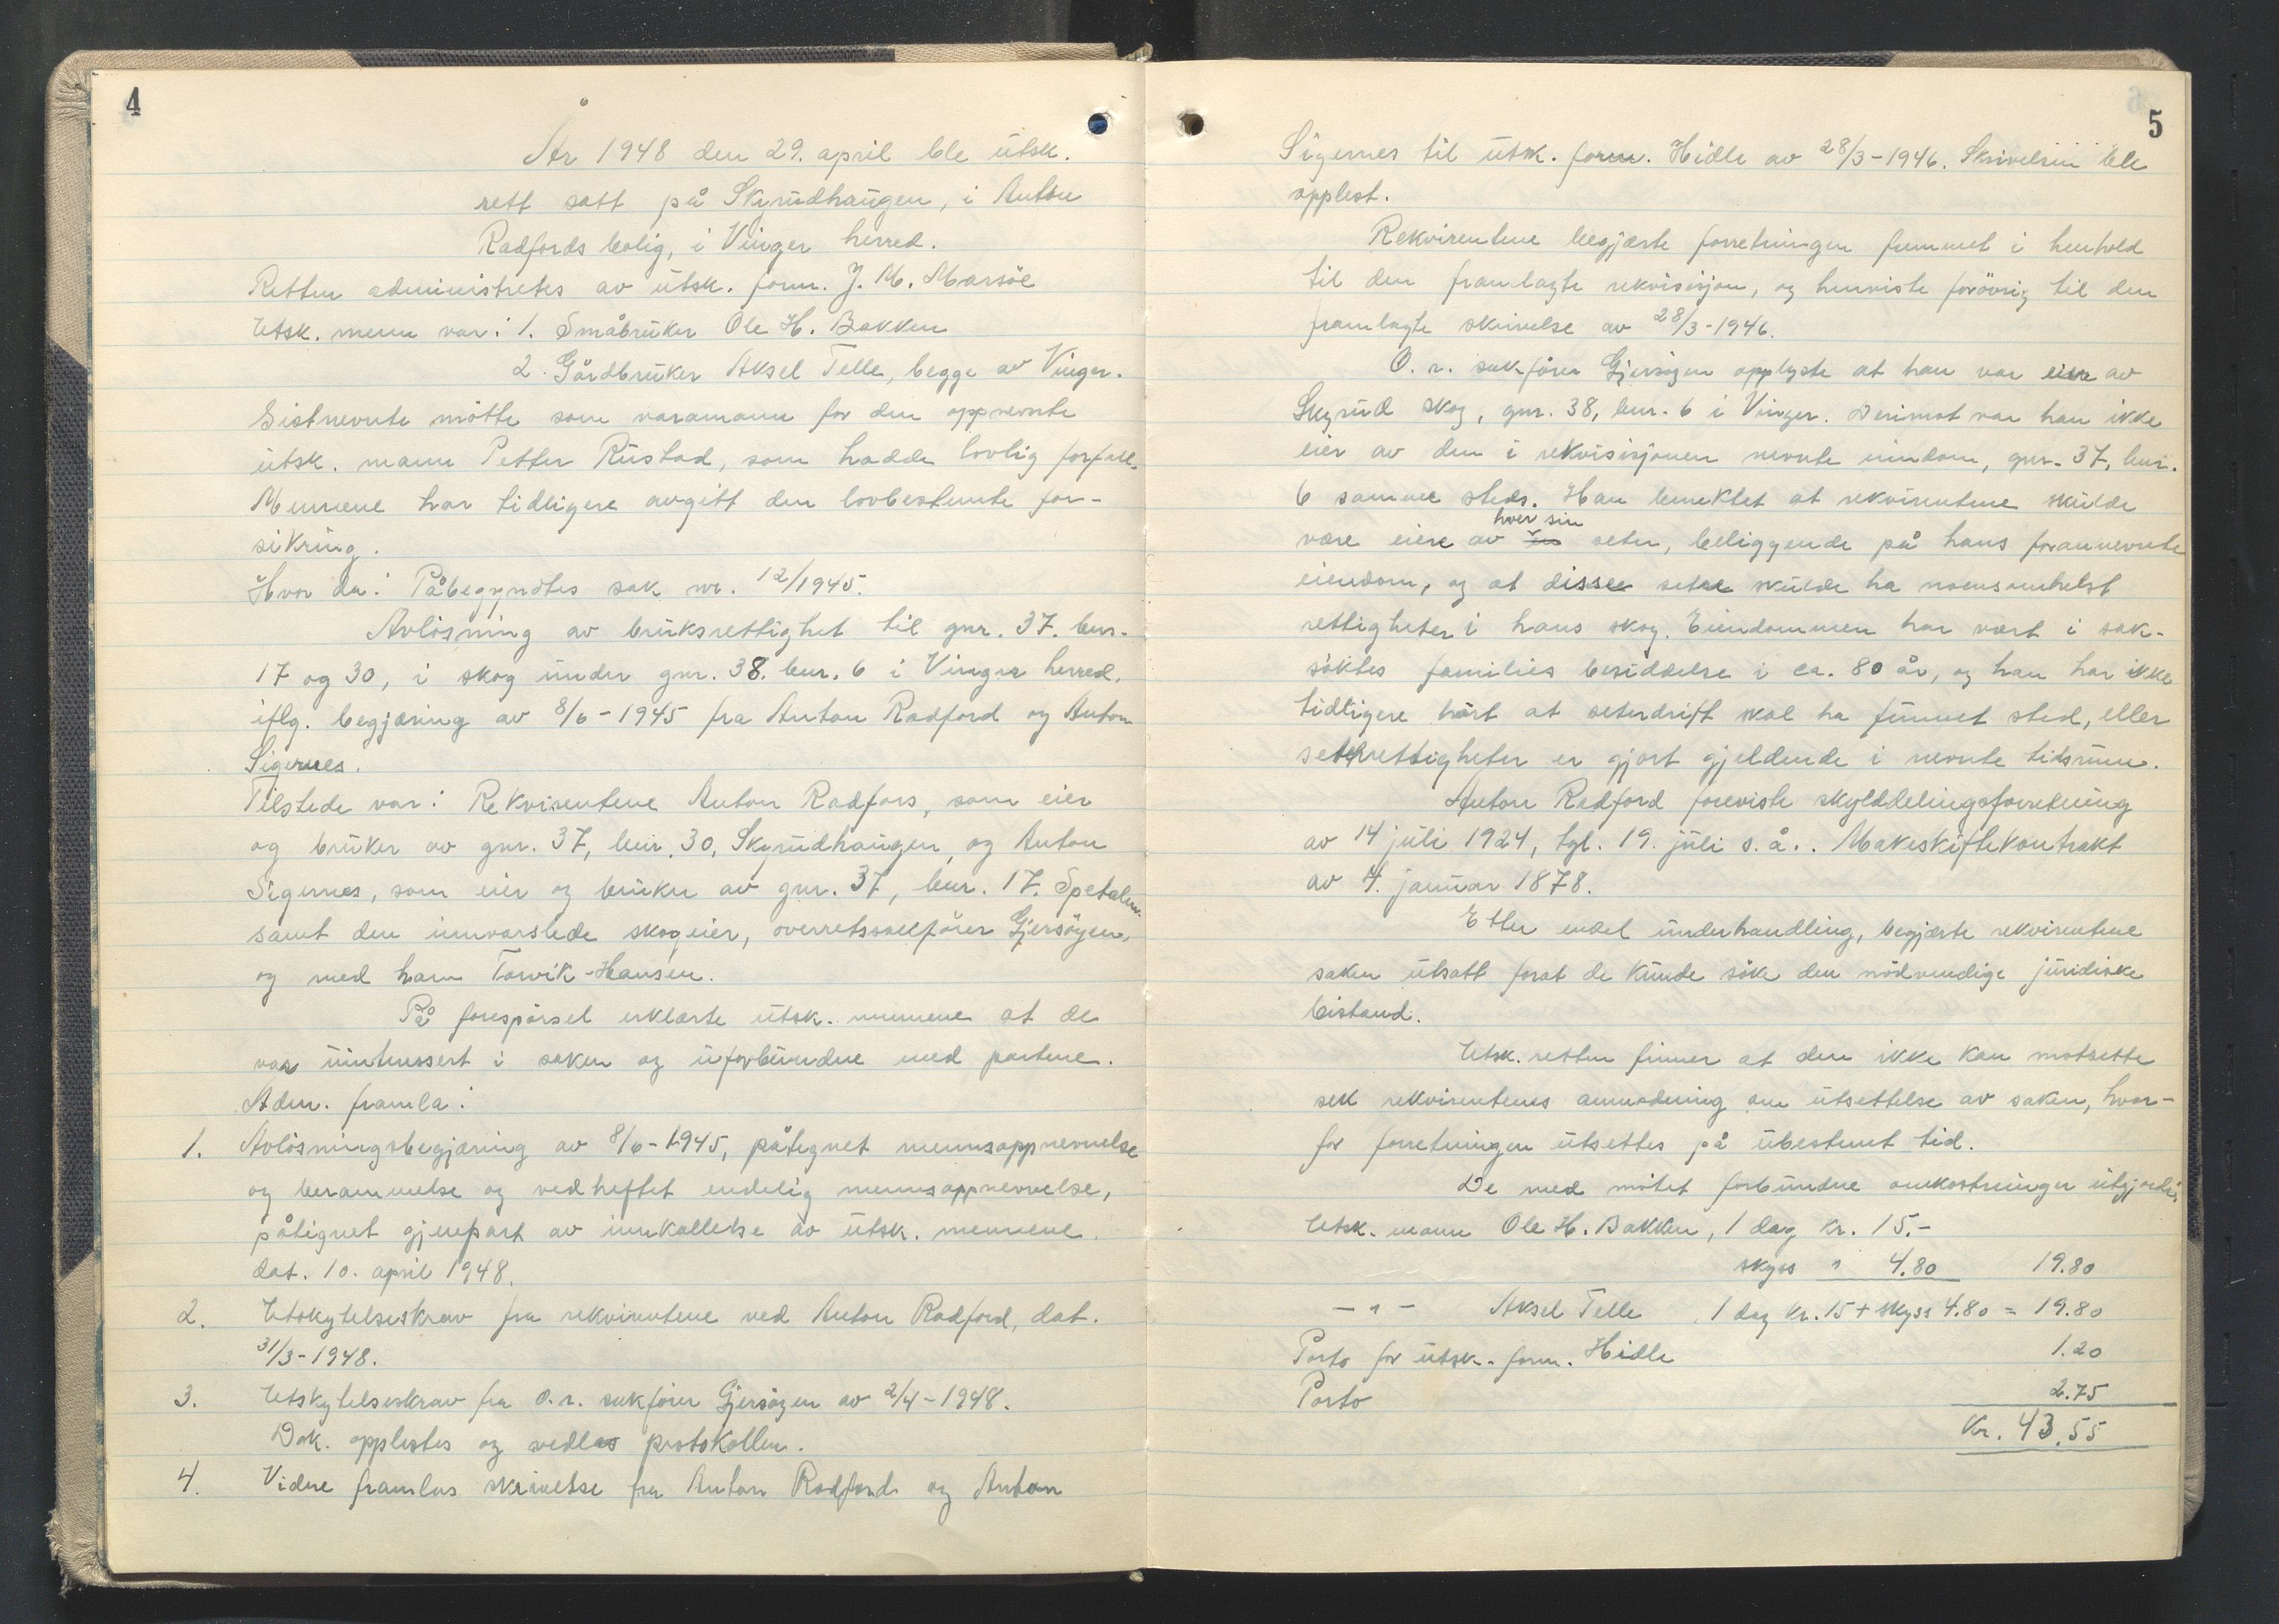 4
År 1948 den 29. april ble utsk.
rett satt på Skyrudhaugen, i Anton
Radfords bolig, i Vinger herred.
Retten administretes av utsk. form. J. M. Marsöe
Utsk. menn var: 1. Småbruker Ole H. Bakken
2. Gårdbruker Aksel Telle, begge av Vinger.
Sistnevnte mötte som varamann for den oppnevnte
utsk. mann Petter Rustad, som hadde lovlig forfall.
Mennene har tidligere avgitt den lovbestemte for-
sikring.
Hvor da: Påbegyndtes sak nr. 12/1945.
Avlösning av bruksrettighet til gnr. 37. bnr.
17 og 30, i skog under gnr. 38. bnr. 6 i Vinger herred,
iflg. begjæring av 8/6-1945 fra Anton Radford og Anton
Sigernes.
Tilstede var: Rekvirentene Anton Radfors, som eier
og bruker av gnr. 37, bnr. 30, Skyrudhaugen, og Anton
Sigernes, som eier og bruker av gnr. 37, bnr. 17. Spetalen
samt den innvarslede skogeier, overretssakförer Gjersöyen,
og med ham Torvik-Hansen.
På forespörsel erklærte utsk. mennene at de
var uinteressert i saken og uforbundne med partene.
Adm. framla:
1. Avlösningsbegjæring av 8/6-1945, påtegnet mennsoppnevnelse
og berammelse og vedheftet endelig mennsoppnevnelse,
påtegnet gjenpart av innkallelse av utsk. mennene
dat. 10. april 1948.
2. Utskytelseskrav fra rekvirentene ved Anton Radford, dat.
31/3-1948.
3. Utskytelseskrav fra o.r. sakförer Gjersöyen av 2/4-1948.
Dok. opplestes og vedlas protokollen.
4. Videre framlas skrivelse fra Anton Radford og Anton
5
Sigernes til utsk. form. Hidle av 28/3-1946. Skrivelsen ble
opplest.
Rekvirentene begjærte forretningen fremmet i henhold
til den framlagte rekvisisjon, og henviste forövrig til den
framlagte skrivelse av 28/3-1946.
O. r. sakförer Gjersöyen opplyste at han var eier av
Skyrud skog, gnr. 38, bnr. 6 i Vinger. Derimot var han ikke
eier av den i rekvisisjonen nevnte eiendom, gnr. 37, bnr.
6 samme steds. Han benektet at rekvirentene skulde
hver sin
være eiere av seter, beliggende på hans forannevnte
eiendom, og at disse setre skulde ha noensomhelst
rettigheter i hans skog. Eiendommen har vært i sak-
söktes families besiddelse i ca. 80 år, og han har ikke
tidligere hört at seterdrift skal ha funnet sted, eller
seterrettigheter er gjort gjeldende i nevnte tidsrum.
Anton Radford foreviste skylddelingsforretning
av 14 juli 1924, tgl. 19. juli s.å.. Makeskiftekontrakt
av 4. januar 1878.
Etter endel underhandling, begjærte rekvirentene
saken utsatt forat de kunde söke den nödvendige juridiske
bistand.
Utsk. retten finner at den ikke kan motsette
sek rekvirentenes anmodning om utsettelse av saken, hvor-
for forretningen utsettes på ubestemt tid.
De med mötet forbundne omkostninger utgjorde:
Utsk. mann Ole H. Bakken, 1 dag kr. 15.-
skyss " 4.80 19.80
- " - Aksel Telle, 1 dag kr. 15 + skyss 4.80 = 19.80
Porto for utsk. form. Hidle 1.20
Porto 2.75
Kr. 43.55